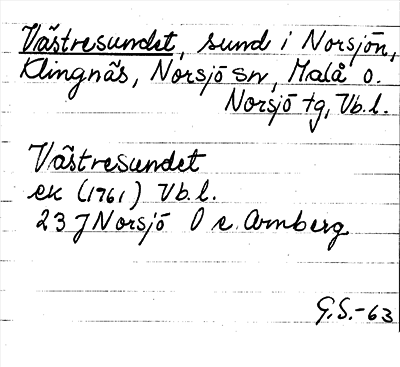 Västresundet, sund i Norsjön,
Klingnäs, Norsjö sn, Malå o.
Norsjö tg, Vb.l.
Västresundet
ek (1961) Vb.l.
23 J Norsjö O e. Arnberg
G.S.-63